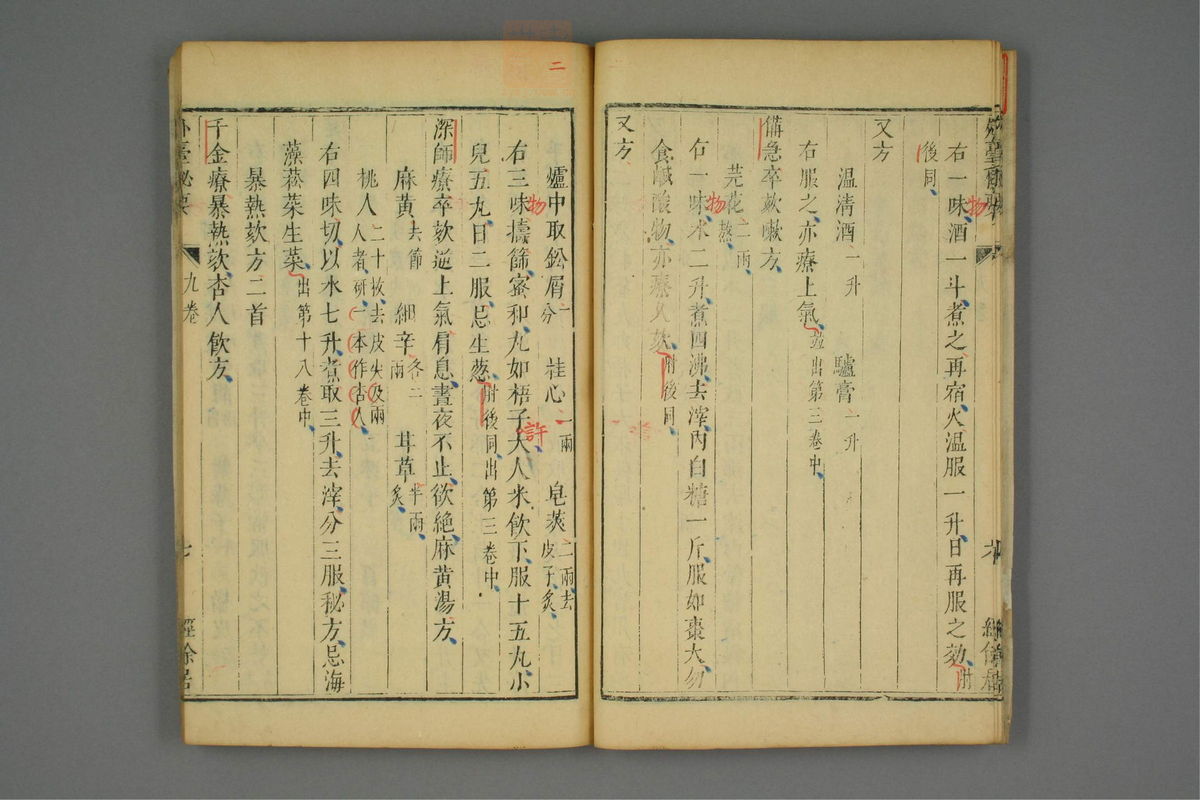 右一味酒一斗煮之再宿火温服一升日再服之効肘
後同
又方
温清酒一升 驢膏一升
右服之亦療上氣並出第三卷中
備急卒欬嗽方
芫花二兩熬
右一味水二升煮四沸去滓內白糖一斤服如棗大勿
食鹹酸物亦療久欬肘後同
又方
二
爐中取鈆屑一分 桂心二兩 皂莢二兩去皮子炙
右三味擣篩蜜和丸如梧子大人米飲下服十五丸小
兒五丸日二服忌生葱肘後同出第三卷中
深師療卒欬逆上氣肩息晝夜不止欲絶麻黄湯方
麻黄去節 細辛各二兩 甘草半兩炙
桃人二十枚去皮尖及兩人者研一本作杏人
右四味切以水七升煮取三升去滓分三服秘方忌海
藻菘菜生菜出第十八卷中
暴熱欬方二首
千金療暴熱欬杏人飲方
外臺秘要 九卷 七 經餘居
物
物
物
許